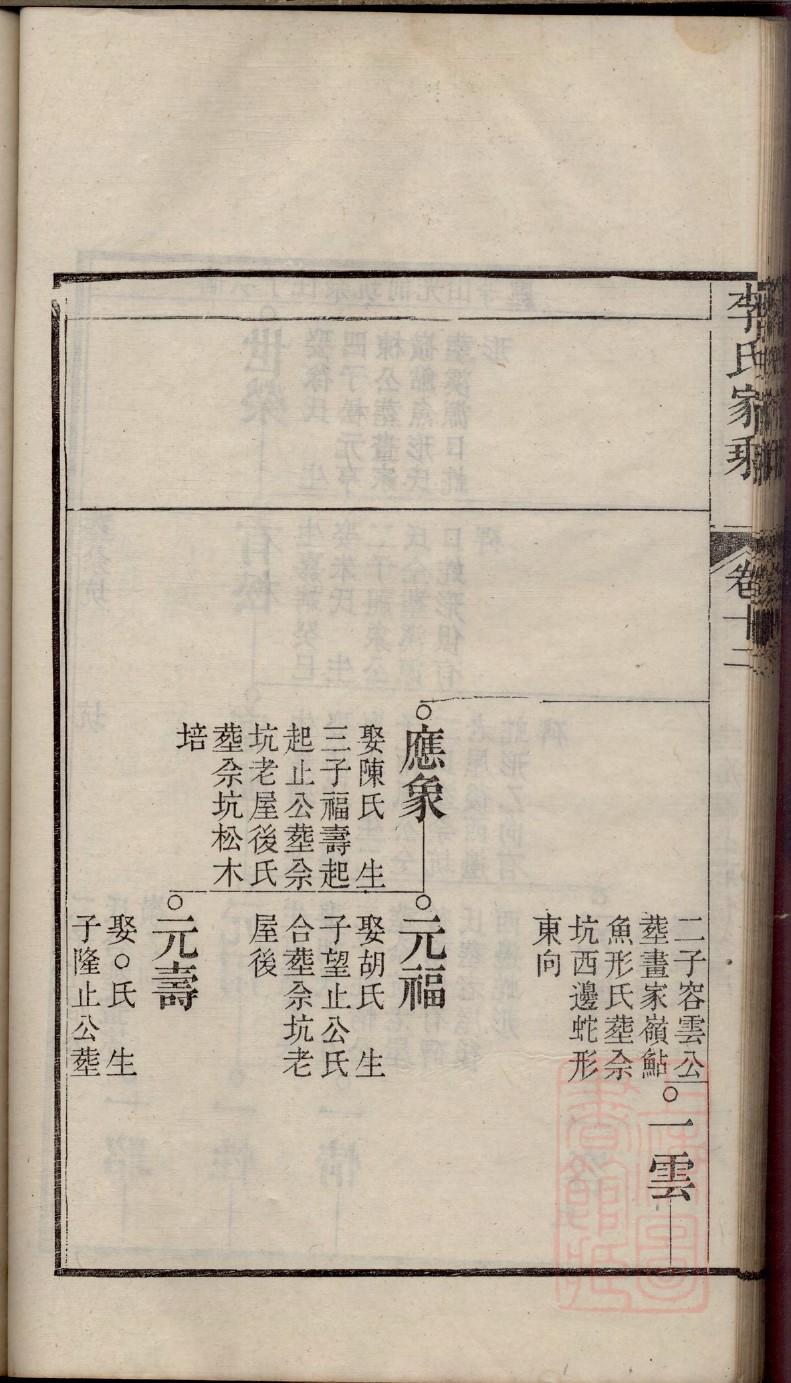 李氏家乘
卷十二
二子容雲公
塟畫家嶺鮎
魚形氏塟佘
坑西邊蛇形
東向
一雲
應象
娶陳氏 生
三子福壽起
起止公塟佘
坑老屋後氏
塟佘坑松木
培
元福
娶胡氏 生
子望止公氏
合塟佘坑老
屋後
元壽
娶○氏 生
子隆止公塟